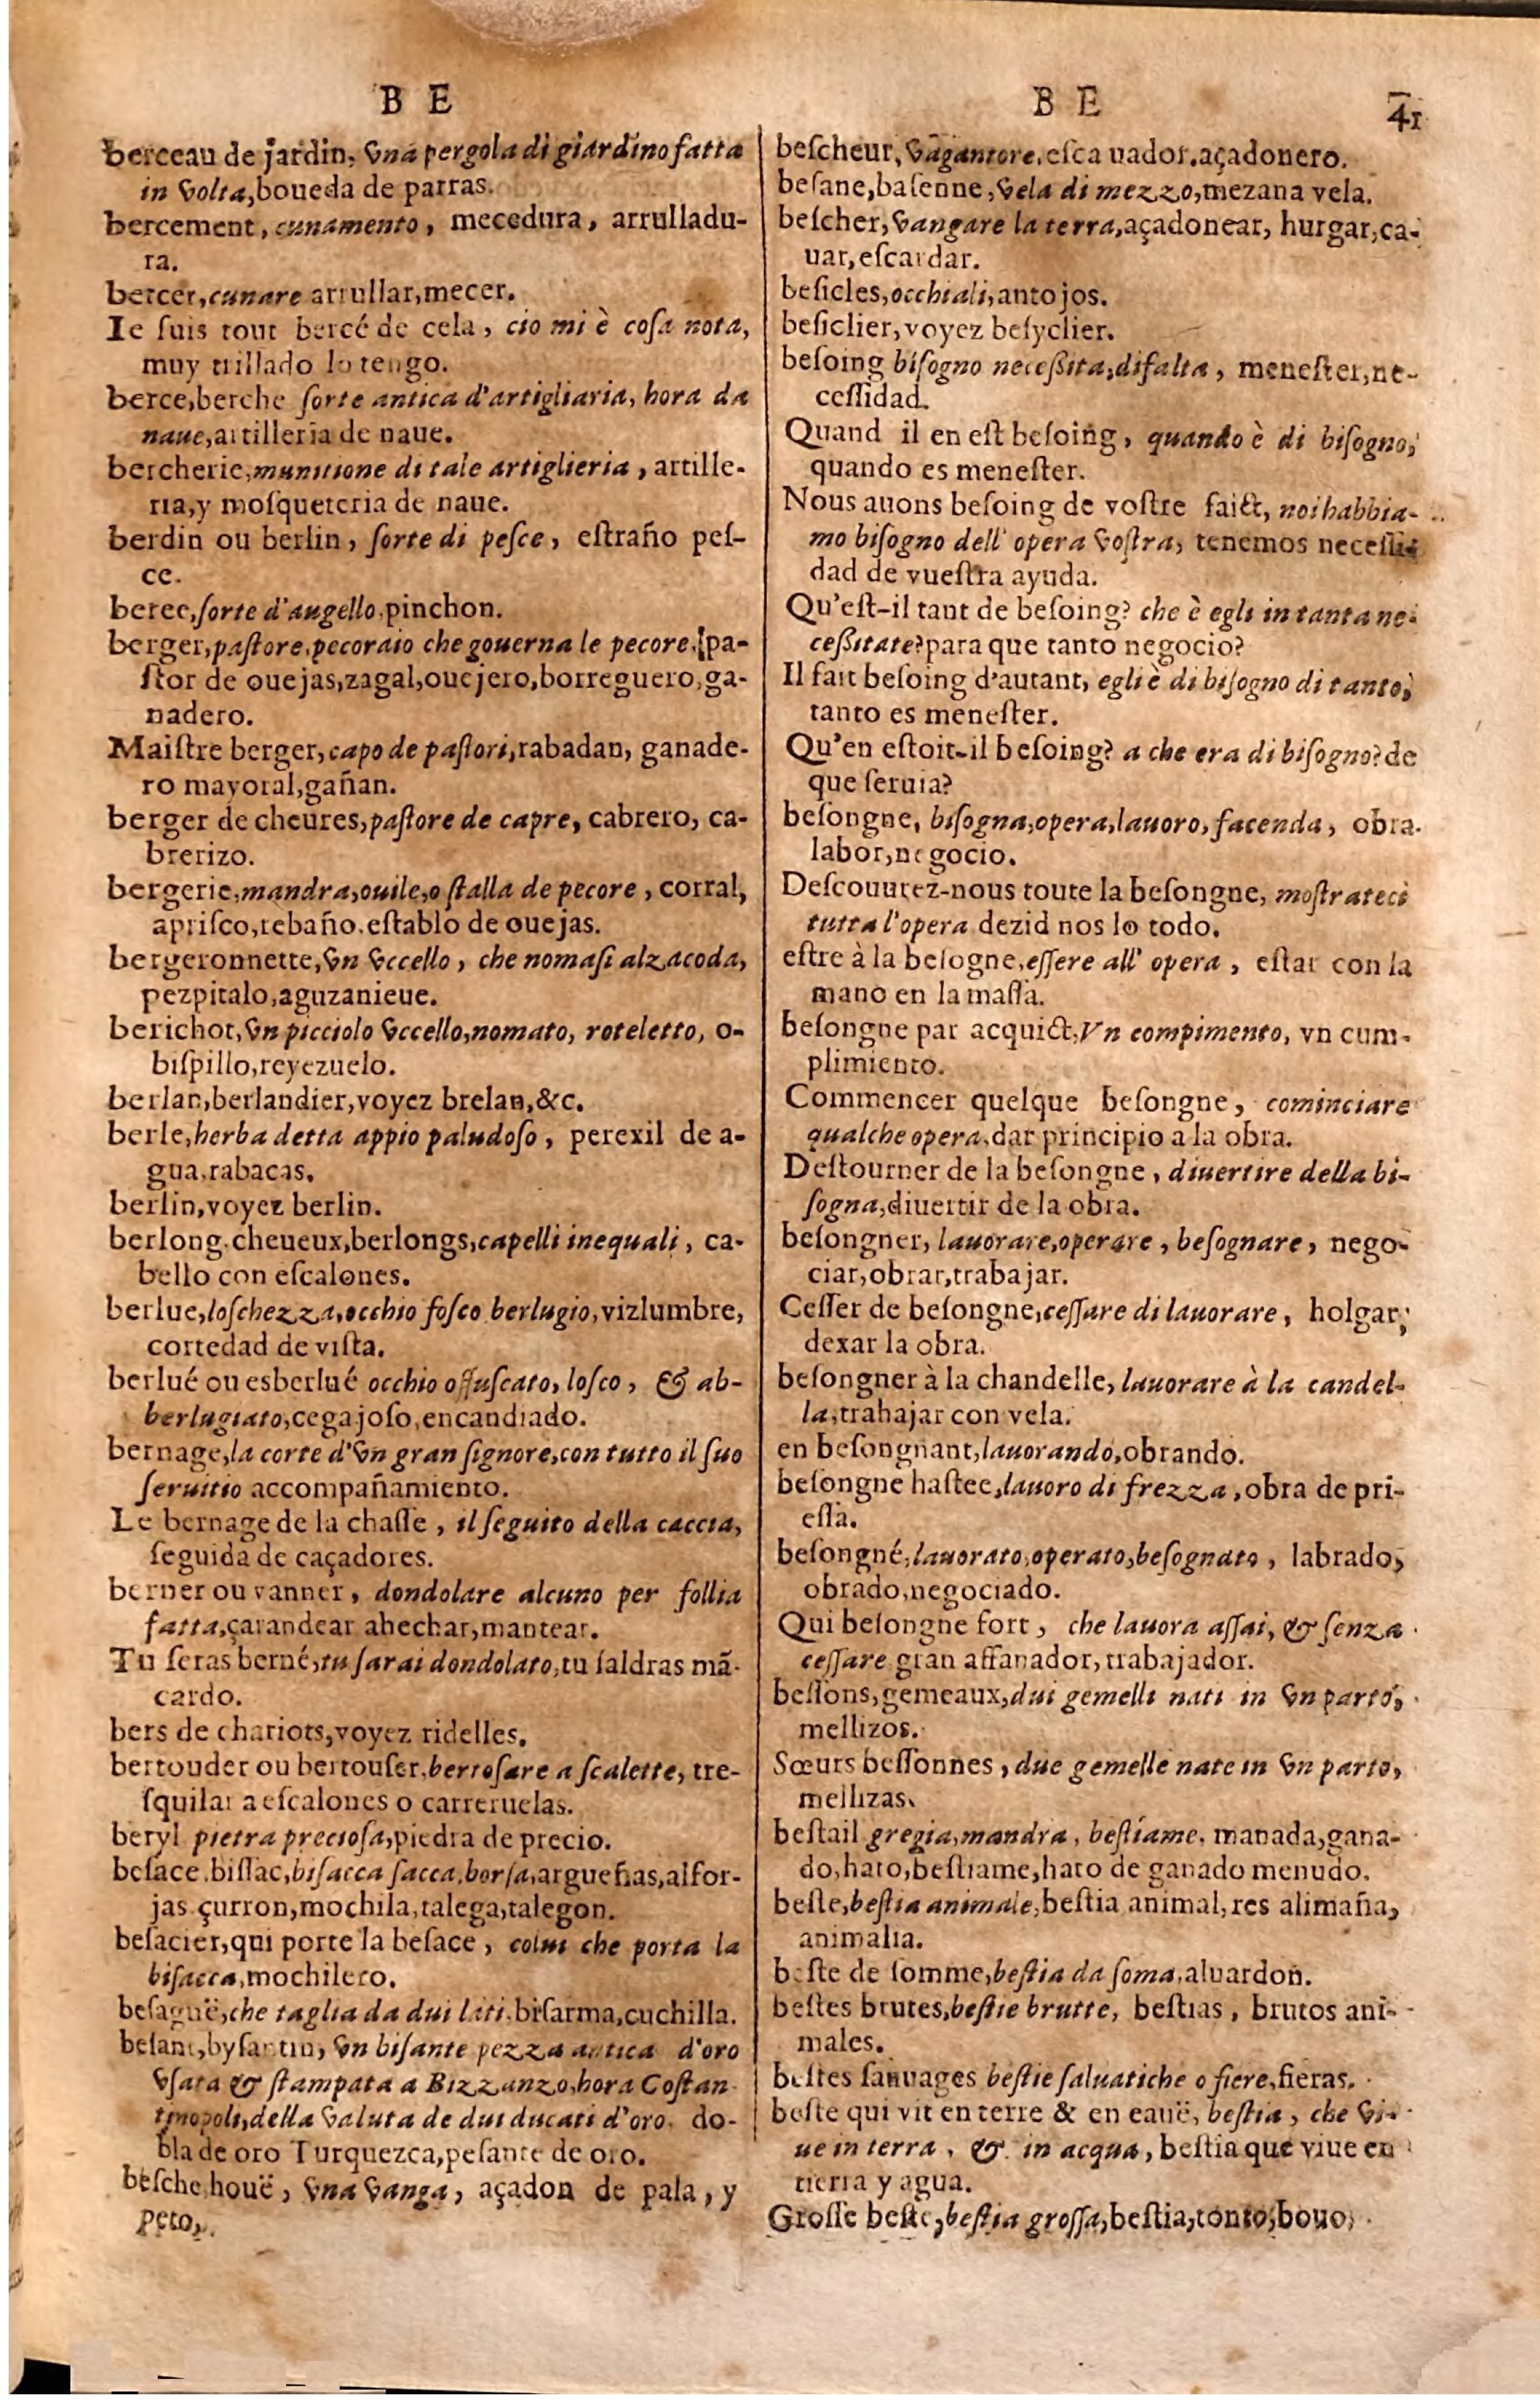 B E
berceau de jardin, vna pergola di giardino fatta
in volta, boueda de parras.
bercement, cunamento, mecedura, arrulladu-
ra.
bercer, cunare arrullar, mecer.
Ie ſuis tout bercé de cela, cio mi è coſa nota,
muy trillado lo tengo.
berce, berche ſorte antica d'artigliaria, hora da
naue, artilleria de naue.
bercherie, munitione di tale artiglieria, artille-
ria, y moſqueteria de naue.
berdin ou berlin, ſorte di peſce, eſtraño peſ-
ce.
beree, ſorte d'augello, pinchon.
berger, paſtore, pecoraio che gouerna le pecore, pa-
ſtor de ouejas, zagal, ouejero, borreguero, ga-
nadero.
Maiſtre berger, capo de paſtori, rabadan, ganade-
ro mayoral, gañan.
berger de cheures, paſtore de capre, cabrero, ca-
brerizo.
bergerie, mandra, ouile, o ſtalla de pecore, corral,
apriſco, rebaño, eſtablo de ouejas.
bergeronnette, vn vccello, che nomaſi alzacoda,
pezpitalo, aguzanieue.
berichot, vn picciolo vccello, nomato, roteletto, o-
biſpillo, reyezuelo.
berlan, berlandier, voyez brelan, &c.
berle, herba detta appio paludoſo, perexil de a-
gua, rabacas.
berlin, voyez berlin.
berlong. cheueux, berlongs, capelli inequali, ca-
bello con eſcalones.
berlue, loſchezza, occhio foſco berlugio, vizlumbre,
cortedad de viſta.
berlué ou esberlué occhio offuſcato, loſco, & ab-
berlugiato, cegajoſo, encandiado.
bernage, la corte d'vn gran ſignore, con tutto il ſuo
ſeruitio accompañamiento.
Le bernage de la chaſſe, il ſeguito della caccia,
ſeguida de caçadores.
berner ou vanner, dondolare alcuno per follia
fatta, çarandear ahechar, mantear.
Tu ſeras berné, tu ſarai dondolato, tu ſaldras mā-
cardo.
bers de chariots, voyez ridelles.
bertouder ou bertouſer, bertoſare a ſcalette, tre-
ſquilar a eſcalones o carreruelas.
beryl pietra precioſa, piedra de precio.
beſace. biſſac, biſacca ſacca, borſa, argueñas, alfor-
jas çurron, mochila, talega, talegon.
beſacier, qui porte la beſace, colui che porta la
biſacca, mochilero.
beſaguë, che taglia da dui lati, biſarma, cuchilla.
beſant, byſantin, vn biſante pezza antica d'oro
vſata & ſtampata a Bizzanzo, hora Coſtan
tinopoli, della valuta de dui ducati d'oro. do-
bla de oro Turquezca, peſante de oro.
beſche, houë, vna vanga, açadon de pala, y
peto,
B E 41
beſcheur, vagantore, eſcauador, açadonero.
beſane, baſenne, vela di mezzo, mezana vela.
beſcher, vangare la terra, açadonear, hurgar, ca-
uar, eſcardar.
beſicles, occhiali, antojos.
beſiclier, voyez beſyclier.
beſoing biſogno neceßita, difalta, meneſter, ne-
ceſſidad.
Quand il en eſt beſoing, quando è di biſogno,
quando es meneſter.
Nous auons beſoing de voſtre faict, noi habbia-
mo biſogno dell' opera voſtra, tenemos neceſſi-
dad de vueſtra ayuda.
Qu'eſt-il tant de beſoing? che è egli in tanta ne-
ceßitate? para que tanto negocio?
Il fait beſoing d'autant, egli è di biſogno di tanto,
tanto es meneſter.
Qu'en eſtoit-il beſoing? a che era di biſogno? de
que ſeruia?
beſongne, biſogna, opera, lauoro, facenda, obra.
labor, negocio.
Deſcouurez-nous toute la beſongne, moſtrateci
tutta l'opera dezid nos lo todo.
eſtre à la beſogne, eſſere all' opera, eſtar con la
mano en la maſſa.
beſongne par acquict, Vn compimento, vn cum-
plimiento.
Commencer quelque beſongne, cominciare
qualche opera, dar principio a la obra.
Deſtourner de la beſongne, diuertire della bi-
ſogna, diuertir de la obra.
beſongner, lauorare, operare, beſognare, nego-
ciar, obrar, trabajar.
Ceſſer de beſongne, ceſſare di lauorare, holgar,
dexar la obra.
beſongner à la chandelle, lauorare à la candel-
la, trabajar con vela.
en beſongnant, lauorando, obrando.
beſongne haſtee, lauoro di frezza, obra de pri-
eſſa.
beſongné, lauorato, operato, beſognato, labrado,
obrado, negociado.
Qui beſongne fort, che lauora aſſai, & ſenza
ceſſare gran affanador, trabajador.
beſſons, gemeaux, dui gemelli nati in vn parto,
mellizos.
Sœurs beſſonnes, due gemelle nate in vn parto,
mellizas.
beſtail gregia, mandra, beſtiame, manada, gana-
do, hato, beſtiame, hato de ganado menudo.
beſte, beſtia animale, beſtia animal, res alimaña,
animalia.
beſte de ſomme, beſtia da ſoma, aluardon.
beſtes brutes, beſtie brutte, beſtias, brutos ani-
males.
beſtes ſauuages beſtie ſaluatiche o fiere, fieras.
beſte qui vit en terre & en eauë, beſtia, che vi-
ue in terra, & in acqua, beſtia que viue en
tierra y agua.
Groſſe beſte, beſtia groſſa, beſtia, tonto, bouo,